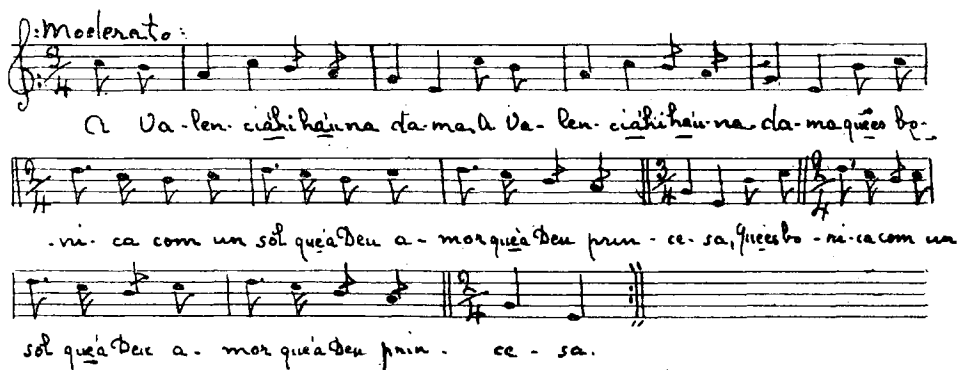 :Moderato:
3/4
A Va-len-cia hi ha u-na da-ma, A Va-len-cia hi ha u-na da-ma que es bo-
2/4 3/4 2/4
-ni-ca com un sol que a Deu a-mor que a Deu prin-ce-sa, Que es bo-ni-ca com un
2/4
sol que a Deu a-mor que a Deu prin-ce-sa.